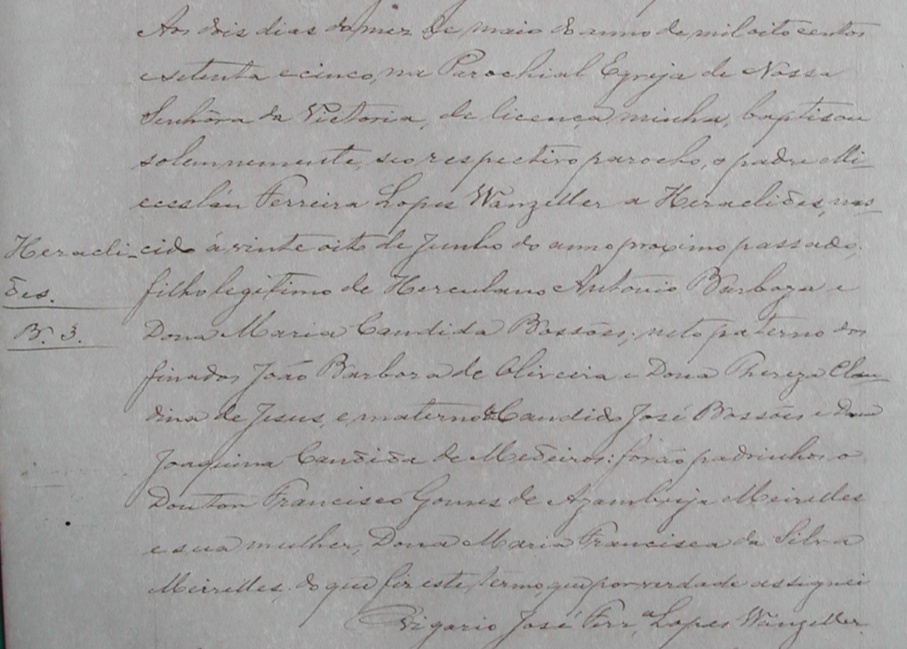 Aos dois dias do mez de maio do anno de mil oito centos
e setenta e cinco, na Parochial Egreja de Nossa
Senhôra da Victoria, de licença minha, baptisou
solemnemente, seo respectivo parocho, o padre Mi-
cesláu Ferreira Lopes Wanzeller a Heraclides, nas-
Heracli-
cido á vinte oito de Junho do anno proximo passado,
des.
filho legitimo de Herculano Antonio Barboza e
B. 3.
Dona Maria Candida Bossões; neto paterno dos
finados João Barboza de Oliveira e Dona Thereza Clau-
dina de Jesus, e materno de Candido José Bossões e Dona
Joaquina Candida de Medeiros: forão padrinhos o
Doutor Francisco Gomes de Azambuja Meirelles
e sua mulher, Dona Maria Francisca da Silva
Meirelles, do que fiz este termo, que por verdade assignei
Vigario José Ferr.ª Lopes Wanzeller.